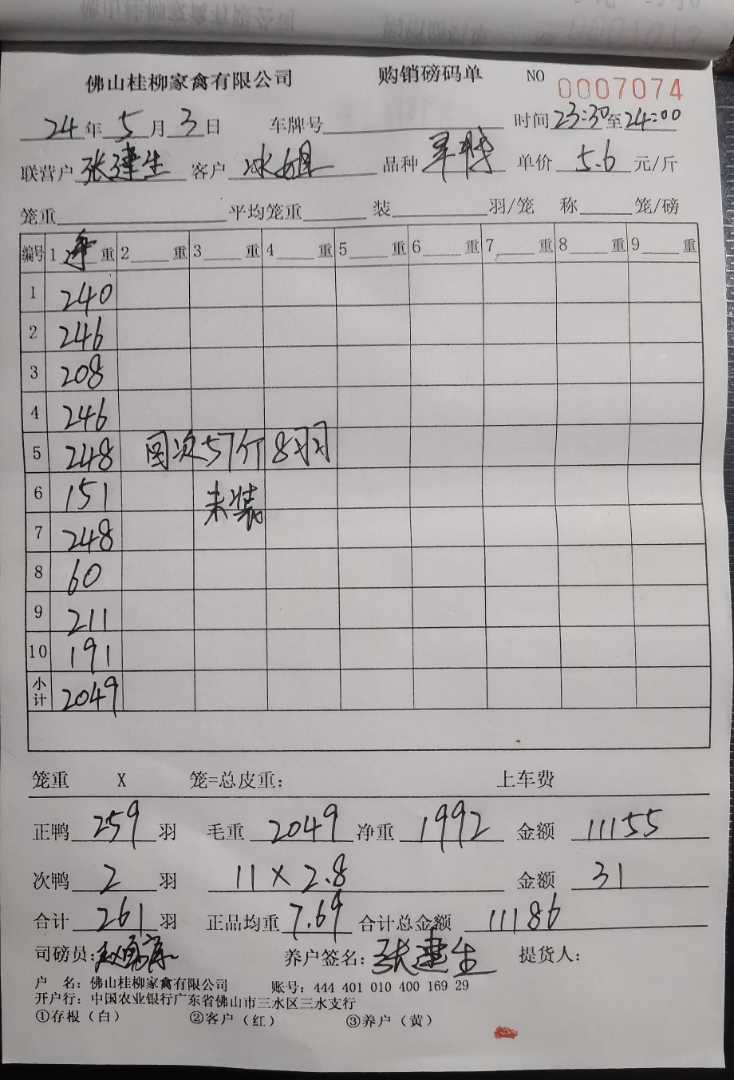 佛山桂柳家禽有限公司 购销磅码单 NO 0007074
24年5月3日 车牌号 时间23:30至24:00
联营户 张建生 客户 冰姐 品种 单价 5.6 元/斤
笼重 平均笼重 装 羽/笼 称 笼/磅
编号 1 净 重 2 重 3 重 4 重 5 重 6 重 7 重 8 重 9 重
1 240
2 246
3 208
4 246
5 248 次57斤8羽
6 151 未装
7 248
8 60
9 211
10 191
小计 2049
笼重 X 笼=总皮重: 上车费
正鸭 259 羽 毛重 2049 净重 1992 金额 11155
次鸭 2 羽 11×2.8 金额 31
合计 261 羽 正品均重 7.69 合计总金额 11186
司磅员: 养户签名: 张建生 提货人:
户 名: 佛山桂柳家禽有限公司 账号: 444 401 010 400 169 29
开户行: 中国农业银行广东省佛山市三水区三水支行
①存根(白) ②客户(红) ③养户(黄)